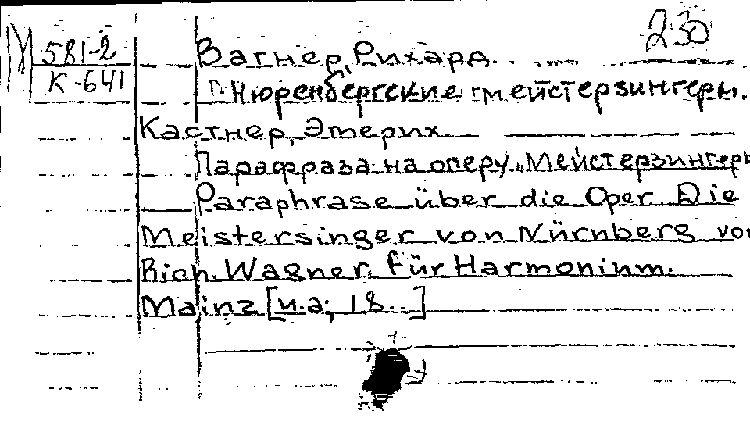 М 581-2
К-641
230
Вагнер, Рихард.
Нюренбергские мейстерзингеры.
Кастнер, Эмерих
Парафраза на оперу „Мейстерзингеры
Paraphrase über die Oper Die
Meistersinger von Nürnberg von
Rich. Wagner für Harmonium.
Mainz [u.a., 18...]